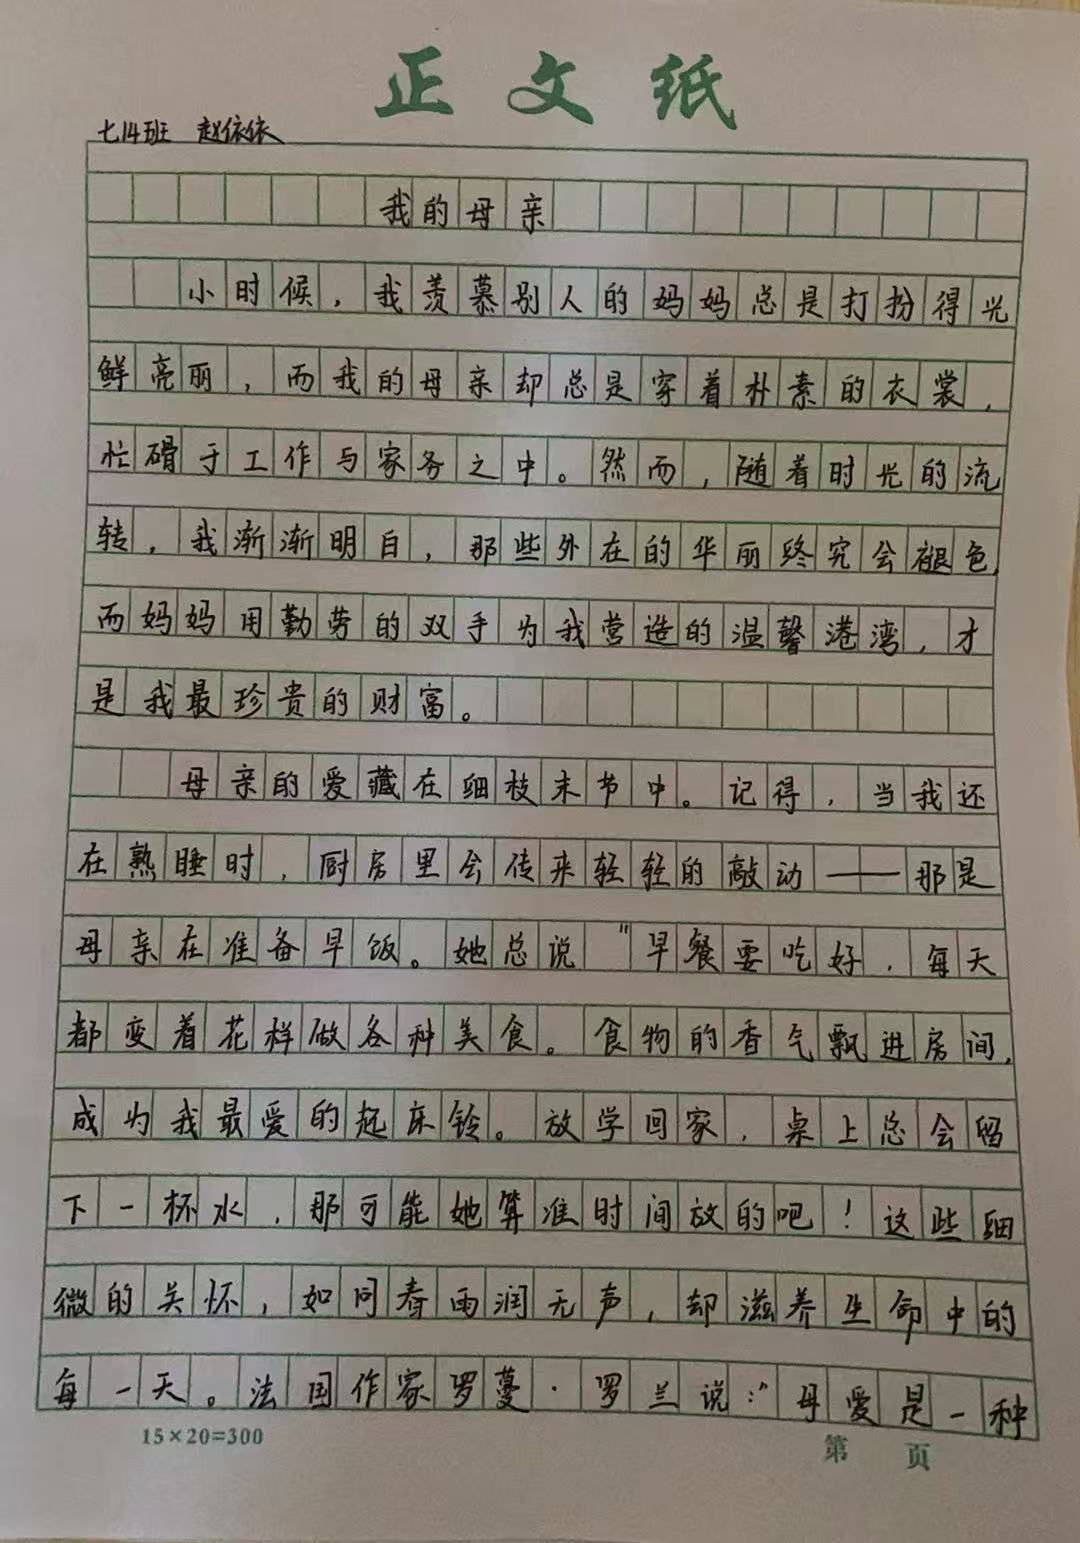 正文纸
七14班 赵依依
我的母亲
小时候，我羡慕别人的妈妈总是打扮得光
鲜亮丽，而我的母亲却总是穿着朴素的衣裳，
忙碌于工作与家务之中。然而，随着时光的流
转，我渐渐明白，那些外在的华丽终究会褪色，
而妈妈用勤劳的双手为我营造的温馨港湾，才
是我最珍贵的财富。
母亲的爱藏在细枝末节中。记得，当我还
在熟睡时，厨房里会传来轻轻的敲动——那是
母亲在准备早饭。她总说“早餐要吃好，每天
都变着花样做各种美食。食物的香气飘进房间，
成为我最爱的起床铃。放学回家，桌上总会留
下一杯水，那可能她算准时间放的吧！这些细
微的关怀，如同春雨润无声，却滋养生命中的
每一天。法国作家罗蔓·罗兰说：“母爱是一种
15×20=300
第 页